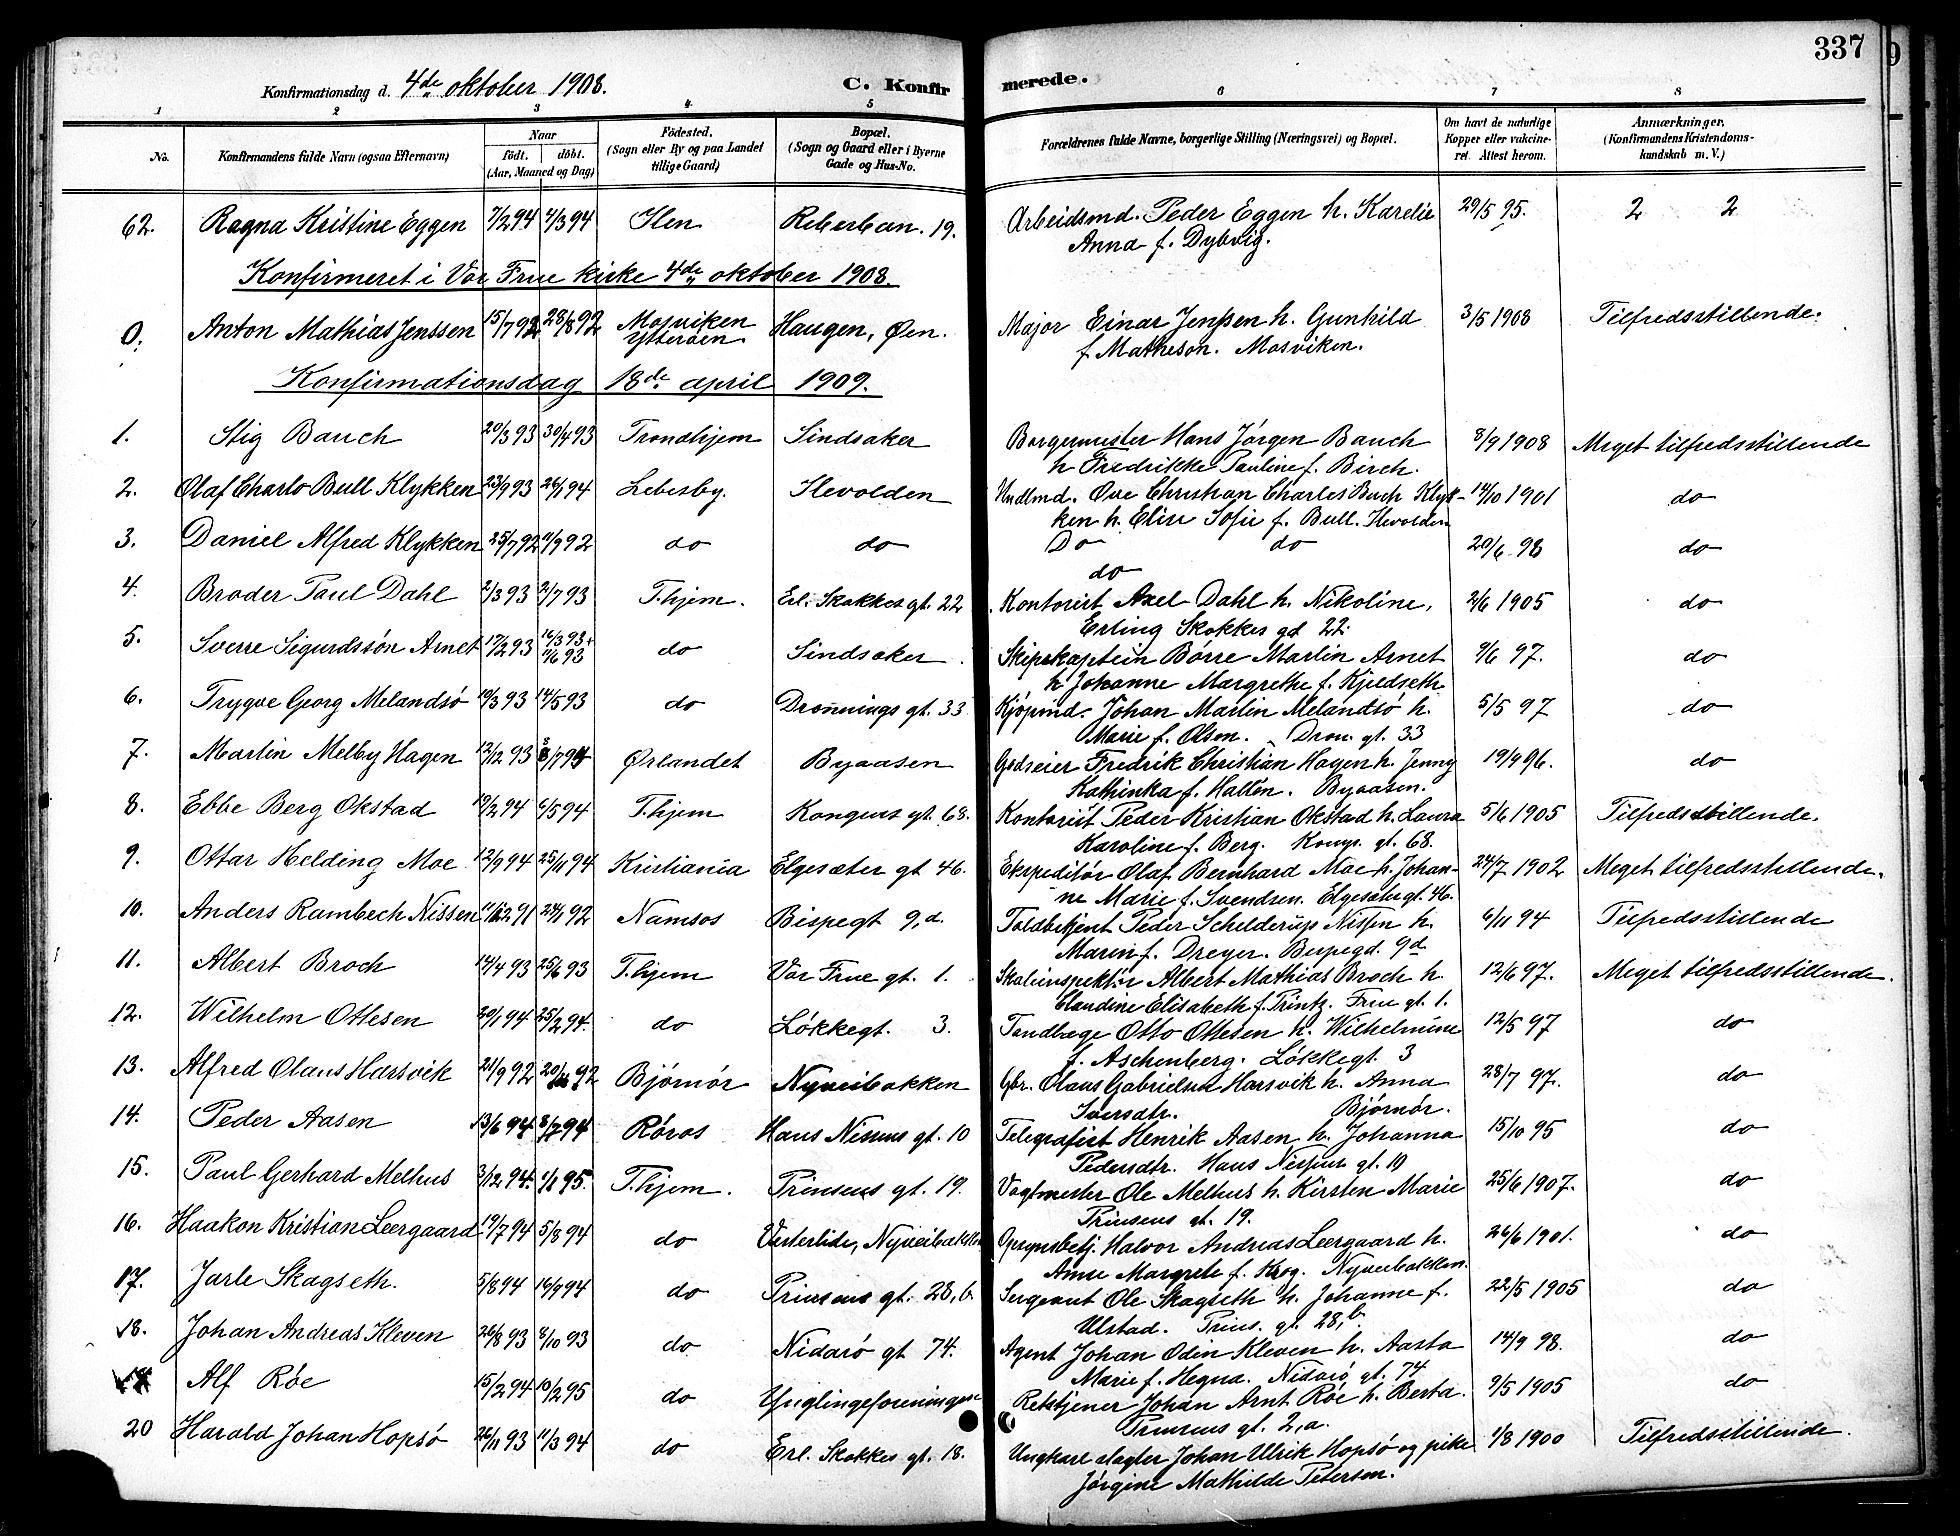 337
Konfirmationsdag d. 4de oktober 1908. C. Konfirmerede.
1 2 3 4 5 6 7 8
No. Konfirmandens fulde Navn (ogsaa Efternavn) Naar født. døbt. (Aar, Maaned og Dag) Fødested. (Sogn eller By og paa Landet tillige Gaard) Bopæl. (Sogn og Gaard eller i Byerne Gade og Hus-No. Forældrenes fulde Navne, borgerlige Stilling (Næringsvei) og Bopæl. Om havt de naturlige Kopper eller vakcineret. Attest herom. Anmærkninger. (Konfirmandens Kristendomskundskab m. V.)
62. Ragna Kristine Eggen 7/2 94 4/3 94 Ilen Reberban. 19. Arbeidsmd. Peder Eggen h. Karelie 29/5 95. 2 2
Anna f. Dybvig.
Konfirmeret i Vor Frue kirke 4de oktober 1908.
0. Anton Mathias Jenssen 15/7 92 28/8 92 Mosviken Ytterøen. Haugen, Øen. Major Einar Jenssen h. Gunhild 3/5 1908 Tilfredsstillende.
f. Matheson. Mosviken.
Konfirmationsdag 18de april 1909.
1. Stig Bauch 20/3 93 30/4 93 Trondhjem Sindsaker Borgermester Hans Jørgen Bauch 8/9 1908 Meget tilfredsstillende
h. Fredrikke Pauline f. Birch.
2. Olaf Charlo Bull Klykken 23/9 93 26/1 94 Lebesby. Ilevolden Handlmd. Ove Christian Charles Buch Klyk- 14/10 1901 do
ken h. Elise Sofie f. Bull. Ilevolden
3. Daniel Alfred Klykken 25/7 92 11/9 92 do do Do do 20/6 98 do
do
4. Broder Paul Dahl 2/3 93 2/7 93 T.hjem. Erl. Skakkes gt. 22 Kontorist Axel Dahl h. Nikoline, 2/6 1905 do
Erling Skakkes gd 22.
5. Sverre Sigurdssøn Arnet 17/2 93 16/3 93 + 11/6 93 do Sindsaker Skipskaptein Børre Martin Arnet 9/6 97. do
h. Johanne Margrethe f. Kjeldseth
6. Trygve Georg Melandsø 10/3 93 14/5 93 do Dronnings gt. 33 Kjøpmd. Johan Martin Melandsø h. 5/5 97 do
Marie f. Olsen. Dron. gt. 33
7. Martin Melby Hagen 12/12 93 8/7 94 Ørlandet Byaasen Godseier Fredrik Christian Hagen h. Jenny 19/9 96. do
Kathinka f. Hallén. Byaasen.
8. Ebbe Berg Okstad 10/2 94 6/5 94 T.hjem Kongens gt. 68. Kontorist Peder Kristian Okstad h. Laura 5/6 1905 Tilfredsstillende.
Karoline f. Berg. Kongs. gt. 68.
9. Ottar Helding Moe 12/9 94 25/11 94 Kristiania Elgesæter gt 46. Ekspeditør Olaf Bernhard Moe h. Johan- 24/7 1902 Meget tilfredsstillende.
ne Marie f. Svendsen. Elgesæter gt. 46.
10. Anders Rambech Nissen 11/12 91 24/1 92 Namsos Bispegt 9, d. Toldbetjent Peder Schelderup Nissen h. 6/11 94 Tilfredsstillende
Marin f. Dreyer. Bispegd. 9d
11. Albert Broch 14/4 93 25/6 93 T.hjem Vor Frue gt. 1. Skoleinspektør Albert Mathias Broch h. 12/6 97. Meget tilfredsstillende.
Claudine Elisabeth f. Printz. Frue gt. 1.
12. Wilhelm Ottesen 20/1 94 25/2 94. do Løkkegt. 3. Tandlæge Otto Ottesen h. Wilhelmine 12/5 97 do
f. Aschenberg. Løkkegt. 3
13. Alfred Olaus Harsvik 21/9 92 20/11 92 Bjørnør Nyveibakken Gbr. Olaus Gabrielsen Harsvik h. Anna 28/7 97. do
Iversdtr. Bjørnør.
14. Peder Aasen 13/6 94 8/7 94 Røros Hans Nissens gt. 10 Telegrafist Henrik Aasen h. Johanna 15/10 95 do
Pedersdtr. Hans Nissens gt. 10
15. Paul Gerhard Melhus 3/12 94. 1/1 95. T.hjem. Prinsens gt. 19. Vagtmester Ole Melhus h. Kirsten Marie 25/6 1907. do
Prinsens gt. 19.
16. Haakon Kristian Leergaard 19/7 94 5/8 94 do Vesterlide, Nyveibakken Opsynsbetj. Halvor Andreas Leergaard h. 26/6 1901. do
Anne Margrete f. Krog. Nyveibakken.
17. Jarle Skagseth. 5/8 94 16/9 94 do Prinsens gt. 28, b. Sergeant Ole Skagseth h. Johanne f. 22/5 1905 do
Ulstad. Prins. gt. 28, b.
18. Johan Andreas Kleven 26/8 93 8/10 93 do Nidarø gt 74. Agent Johan Odin Kleven h. Aasta 14/9 98. do
Marie f. Hegna. Nidarø gt. 74
19 Alf Røe 15/2 94 10/2 95 do Ynglingeforeningen Retstjener Johan Arnt Røe h. Berta. 9/5 1905 do
Prinsens gt. 2, a.
20 Harald Johan Hopsø 26/11 93 11/3 94 do Erl. Skakkes gt. 18. Ungkarl slagter Johan Ulrik Hopsø og pike 1/8 1900 Tilfredsstillende.
Jørgine Mathilde Peterson.